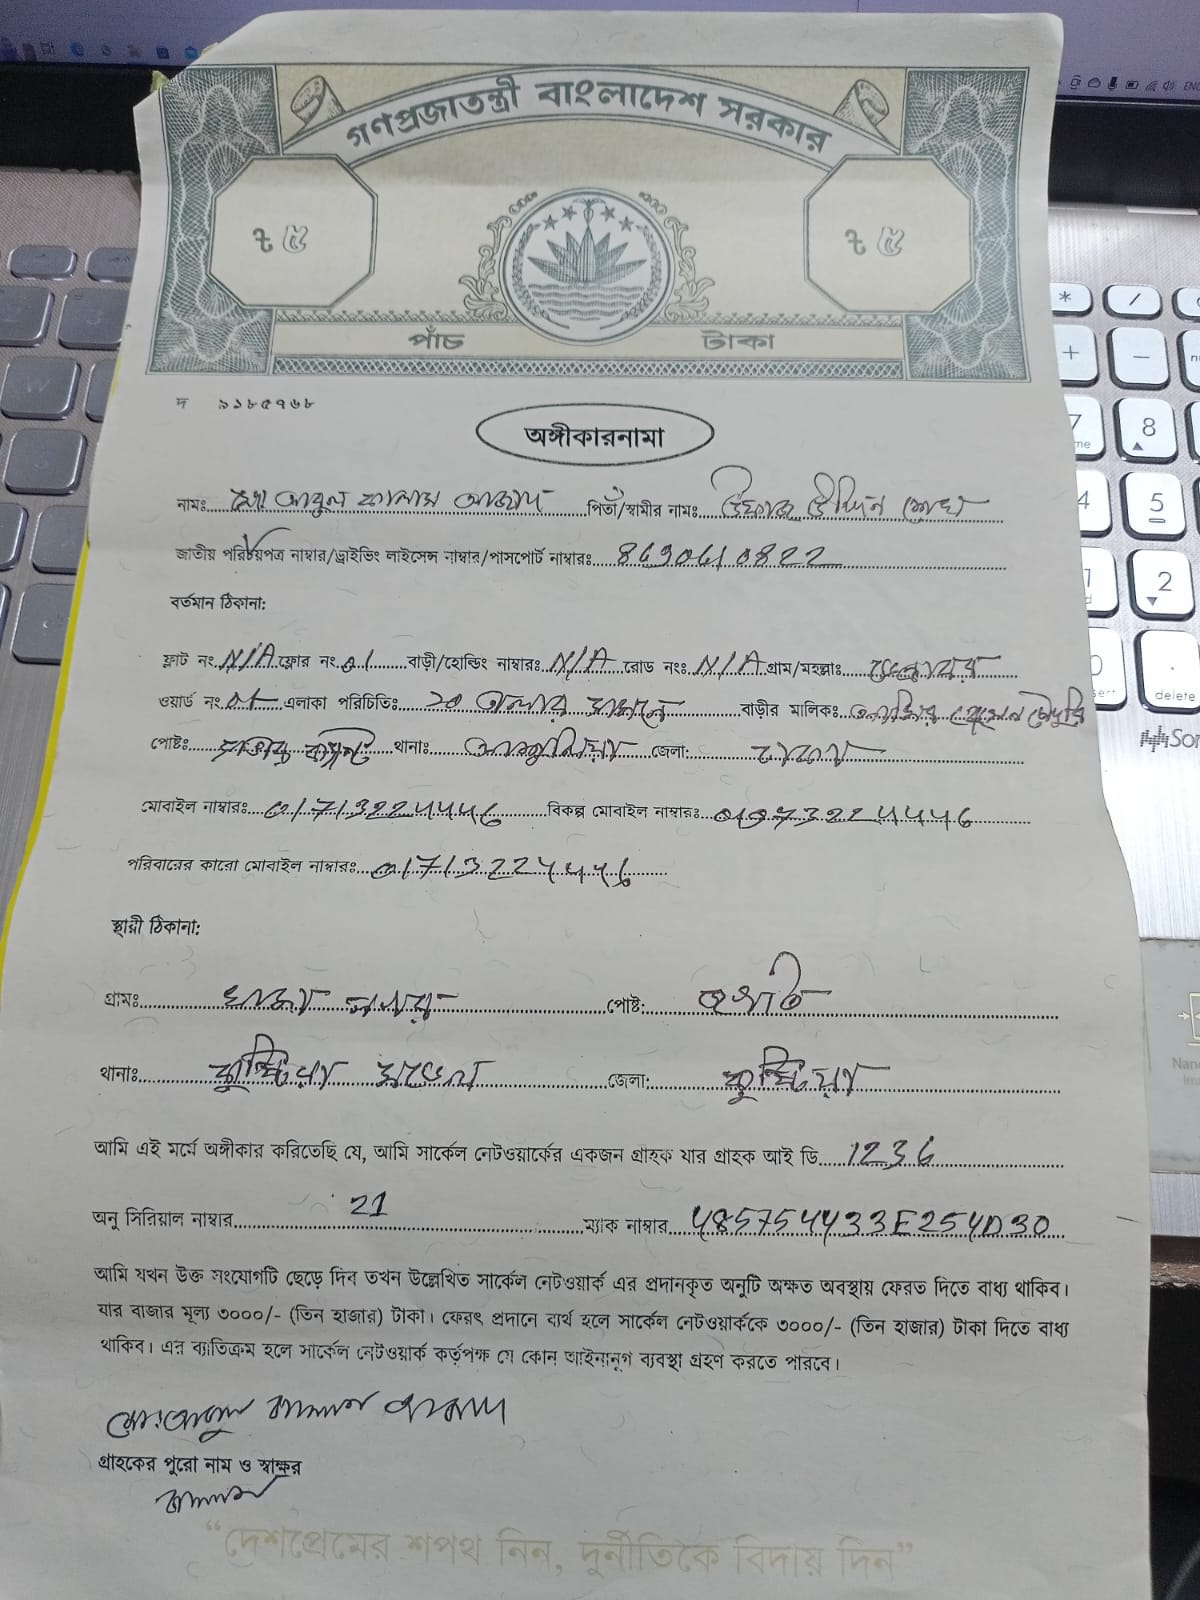 গণপ্রজাতন্ত্রী বাংলাদেশ সরকার
৳ ৫ ৳ ৫
পাঁচ টাকা
দ ৯১৮৫৭৬৮
অঙ্গীকারনামা
নামঃ মোঃ আবুল কালাম আজাদ পিতাঁ/স্বামীর নামঃ উদ্দিন শেখ
জাতীয় পরিচয়পত্র নাম্বার/ড্রাইভিং লাইসেন্স নাম্বার/পাসপোর্ট নাম্বারঃ 8690610822
বর্তমান ঠিকানা:
ফ্লাট নং N/A ফ্লোর নং 01 বাড়ী/হোল্ডিং নাম্বারঃ N/A রোড নংঃ N/A গ্রাম/মহল্লাঃ
ওয়ার্ড নং এলাকা পরিচিতিঃ বাড়ীর মালিকঃ চৌধুরি
পোষ্টঃ থানাঃ আশুলিয়া জেলা: ঢাকা
মোবাইল নাম্বারঃ 01713224446 বিকল্প মোবাইল নাম্বারঃ 01973224446
পরিবারের কারো মোবাইল নাম্বারঃ 01713224446
স্থায়ী ঠিকানা:
গ্রামঃ পোষ্ট:
থানাঃ কুষ্টিয়া মডেল জেলা: কুষ্টিয়া
আমি এই মর্মে অঙ্গীকার করিতেছি যে, আমি সার্কেল নেটওয়ার্কের একজন গ্রাহক যার গ্রাহক আই ডি 1236
অনু সিরিয়াল নাম্বার 21 ম্যাক নাম্বার 485754433E254D30
আমি যখন উক্ত সংযোগটি ছেড়ে দিব তখন উল্লেখিত সার্কেল নেটওয়ার্ক এর প্রদানকৃত অনুটি অক্ষত অবস্থায় ফেরত দিতে বাধ্য থাকিব।
যার বাজার মূল্য ৩০০০/- (তিন হাজার) টাকা। ফেরৎ প্রদানে ব্যর্থ হলে সার্কেল নেটওয়ার্ককে ৩০০০/- (তিন হাজার) টাকা দিতে বাধ্য
থাকিব। এর ব্যতিক্রম হলে সার্কেল নেটওয়ার্ক কর্তৃপক্ষ যে কোন আইনানুগ ব্যবস্থা গ্রহণ করতে পারবে।
মোঃ আবুল কালাম আজাদ
গ্রাহকের পুরো নাম ও স্বাক্ষর
কালাম
“দেশপ্রেমের শপথ নিন, দুর্নীতিকে বিদায় দিন”